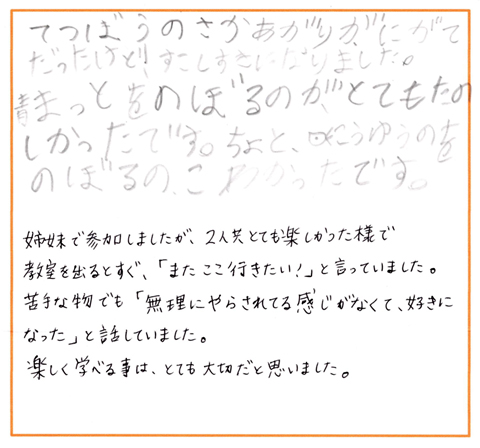 てつぼうのさかあがりが、にがて
だったけど、すこしすきになりました。
まっとをのぼるのが、とてもたの
しかったです。ちょと、こうゆうのを
のぼるの、こわかったです。
姉妹で参加しましたが、2人共とても楽しかった様で
教室を出るとすぐ、「またここ行きたい!」と言っていました。
苦手な物でも「無理にやらされてる感じがなくて、好きに
なった」と話していました。
楽しく学べる事は、とても大切だと思いました。